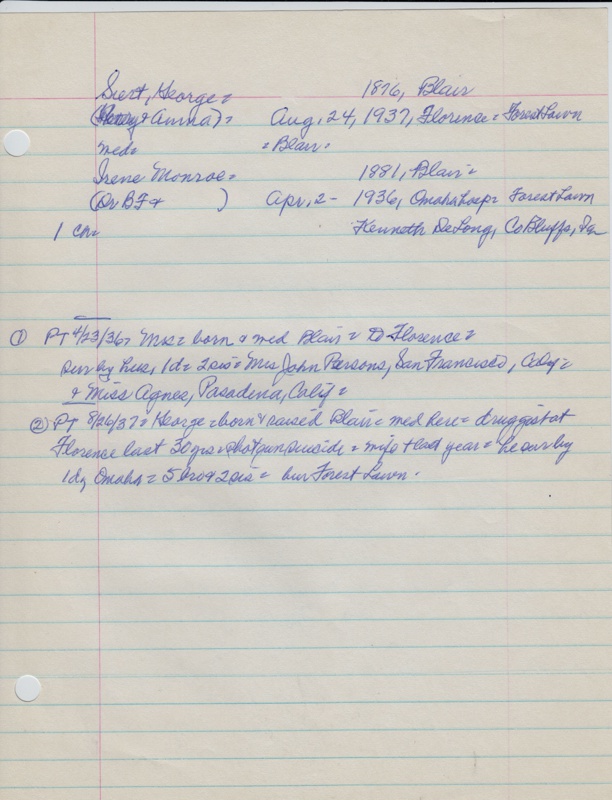 Siert, George = 1876, Blair
(Henry & Anna) = Aug. 24, 1937, Florence = Forest Lawn
med = = Blair =
Irene Monroe = 1881, Blair =
(Dr BF & ) Apr, 2 - 1936, Omaha hosp = Forest Lawn
1 ch = Kenneth DeLong, Co Bluffs, Ia
① PT 4/23/36 = Mrs = born & med Blair = D Florence =
sur by hus, 1 d = 2 sis = Mrs John Persons, San Francisco, Calif =
& Miss Agnes, Pasadena, Calif =
② PT 8/26/37 = George = born & raised Blair = med here = druggist at
Florence last 30 yrs = shotgun suicide = wife + last year = he sur by
1 d, Omaha = 5 bro & 2 sis = bur Forest Lawn.